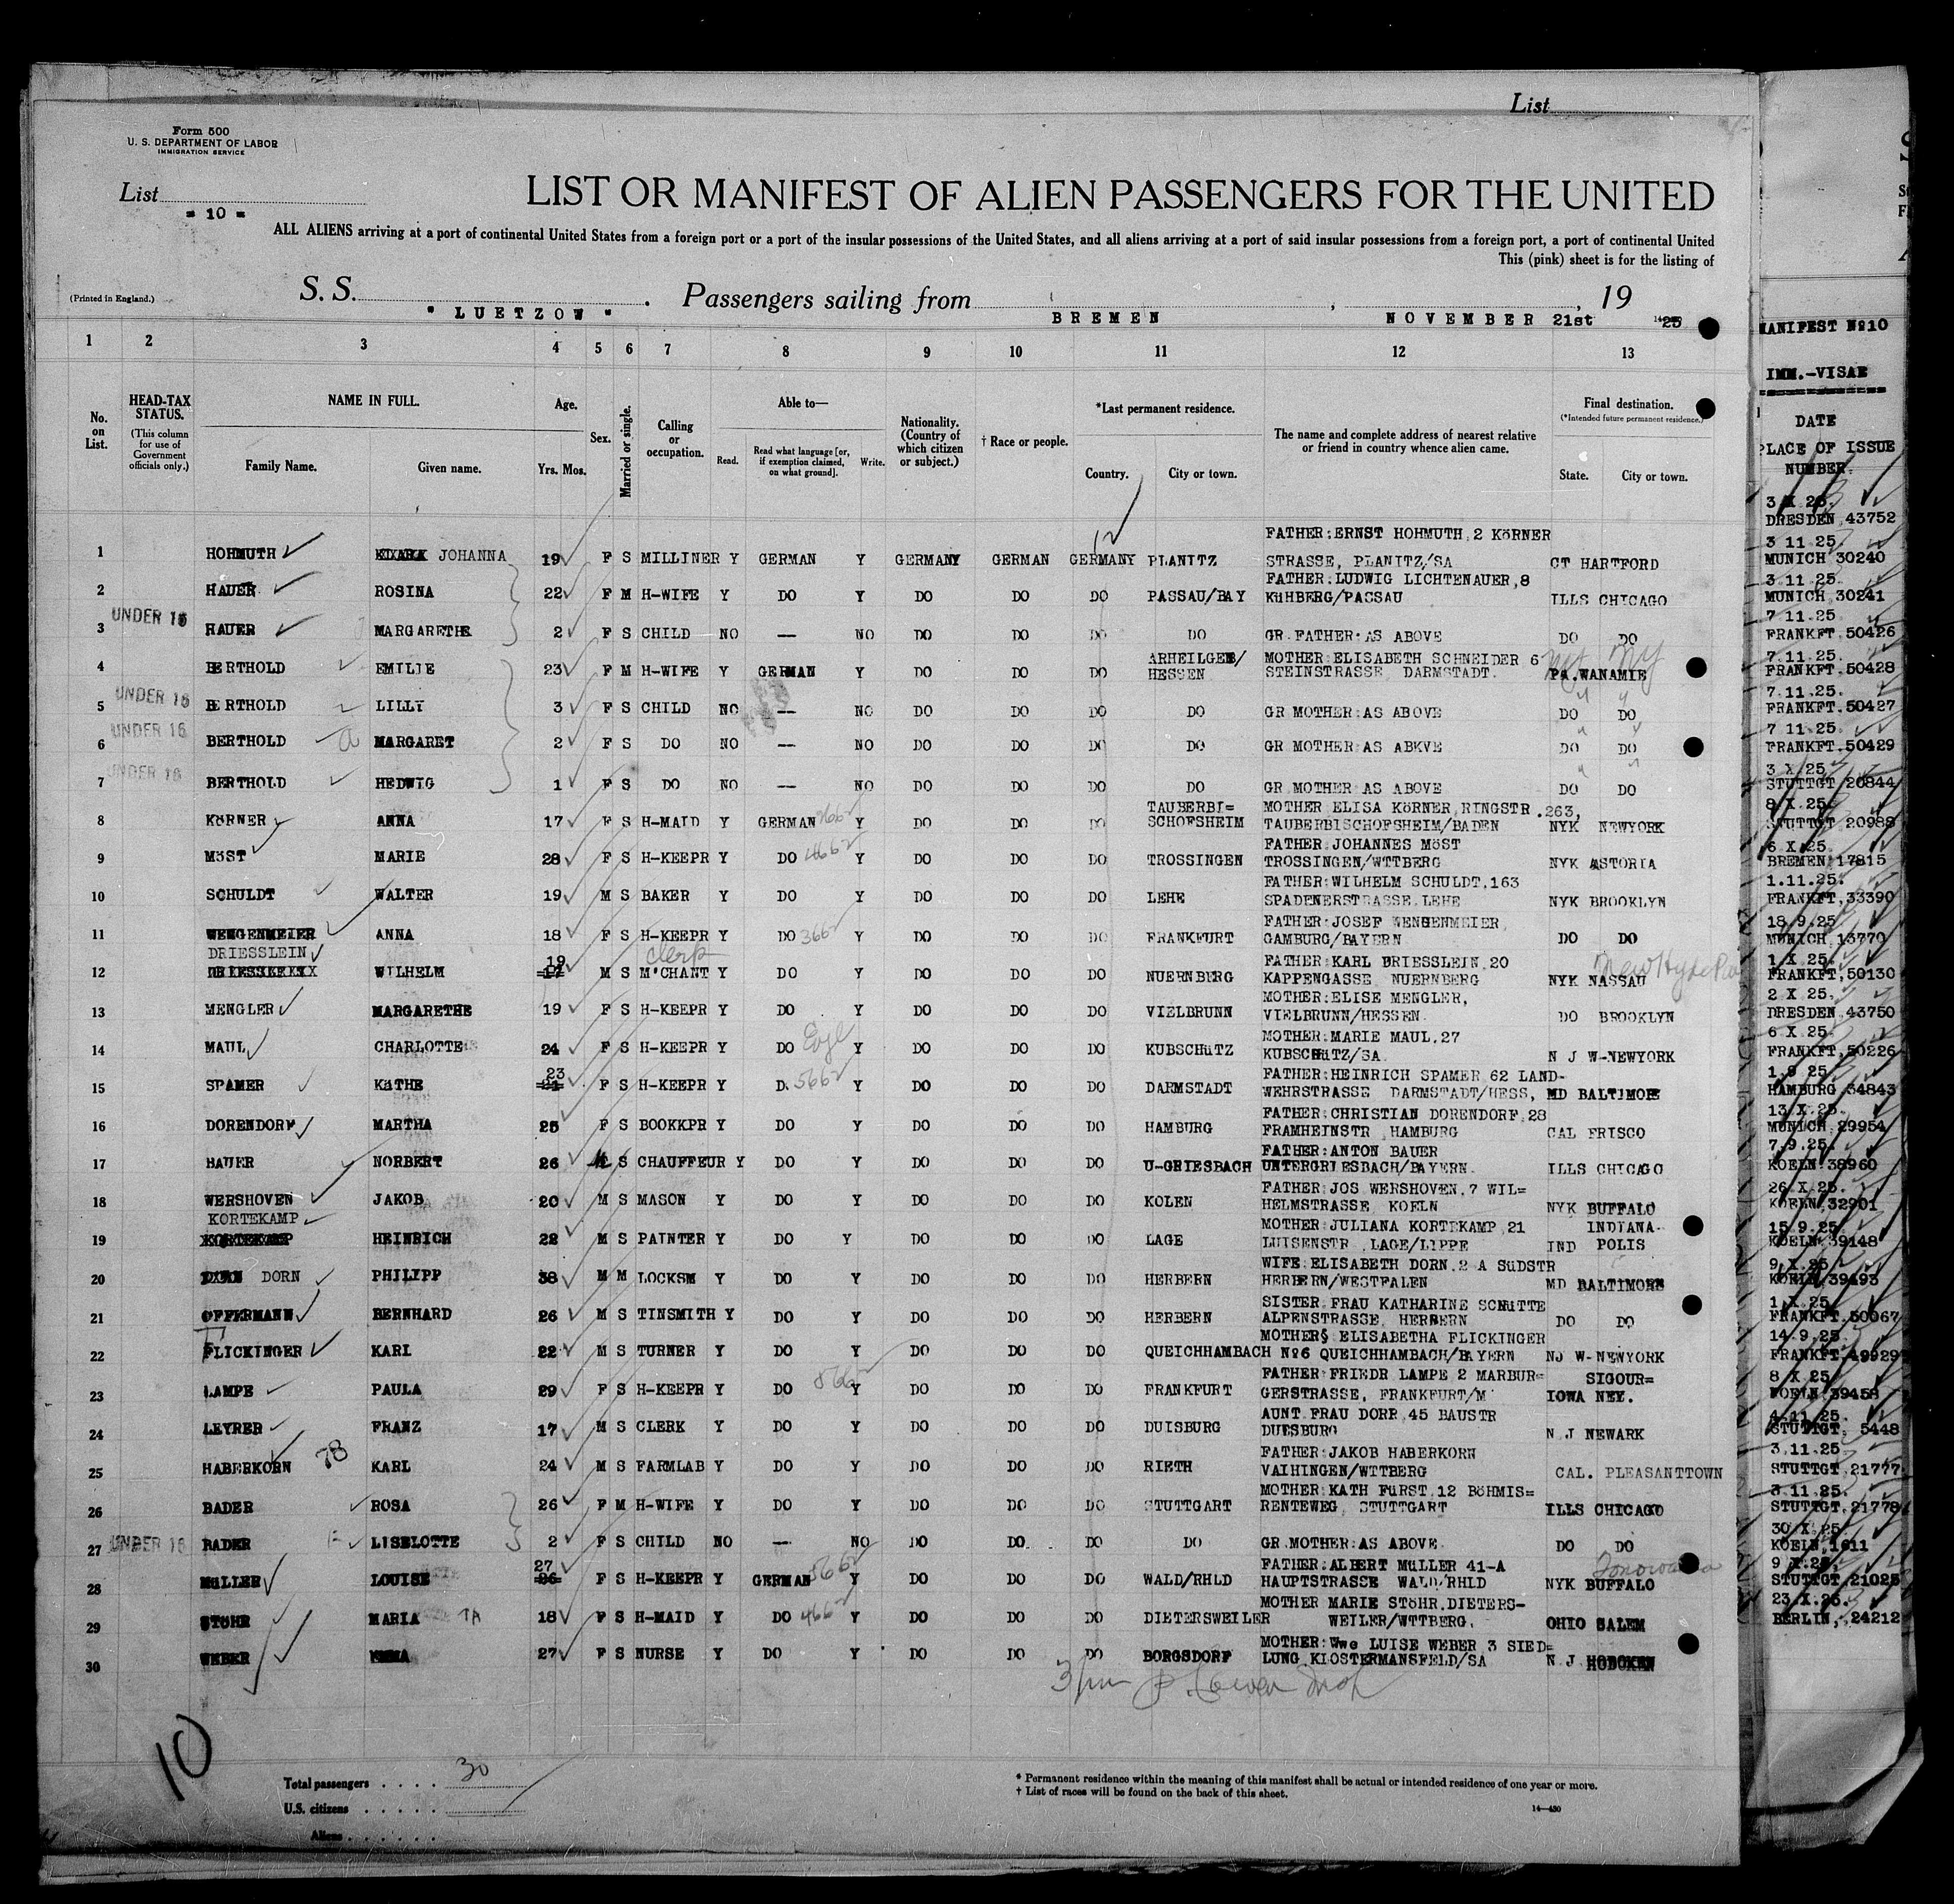 List
Form 500
U. S. DEPARTMENT OF LABOR
IMMIGRATION SERVICE
List
= 10 =
LIST OR MANIFEST OF ALIEN PASSENGERS FOR THE UNITED
ALL ALIENS arriving at a port of continental United States from a foreign port or a port of the insular possessions of the United States, and all aliens arriving at a port of said insular possessions from a foreign port, a port of continental United
This (pink) sheet is for the listing of
(Printed in England.)
S. S. " LUETZOW " . Passengers sailing from BREMEN , NOVEMBER 21st , 19 25
1 2 3 4 5 6 7 8 9 10 11 12 13
No. on List.
HEAD-TAX STATUS. (This column for use of Government officials only.)
NAME IN FULL.
Family Name. Given name.
Age. Yrs. Mos.
Sex.
Married or single.
Calling or occupation.
Able to—
Read. Read what language [or, if exemption claimed, on what ground]. Write.
Nationality. (Country of which citizen or subject.)
† Race or people.
*Last permanent residence.
Country. City or town.
The name and complete address of nearest relative or friend in country whence alien came.
Final destination.
(*Intended future permanent residence.)
State. City or town.
FATHER:ERNST HOHMUTH,2 KöRNER
1 HOHMUTH JOHANNA 19 F S MILLINER Y GERMAN Y GERMANY GERMAN GERMANY PLANITZ STRASSE, PLANITZ/SA CT HARTFORD
FATHER:LUDWIG LICHTENAUER,8
2 HAUER ROSINA 22 F M H-WIFE Y DO Y DO DO DO PASSAU/BAY KüHBERG/PASSAU ILLS CHICAGO
UNDER 16
3 HAUER MARGARETHE 2 F S CHILD NO -- NO DO DO DO DO GR.FATHER:AS ABOVE DO DO
ARHEILGEN/ MOTHER:ELISABETH SCHNEIDER 6
4 BERTHOLD EMILIE 23 F M H-WIFE Y GERMAN Y DO DO DO HESSEN STEINSTRASSE DARMSTADT. PA.WANAMIE
UNDER 16
5 BERTHOLD LILLY 3 F S CHILD NO -- NO DO DO DO DO GR MOTHER:AS ABOVE DO DO
UNDER 16
6 BERTHOLD MARGARET 2 F S DO NO -- NO DO DO DO DO GR MOTHER:AS ABKVE DO DO
UNDER 16
7 BERTHOLD HEDWIG 1 F S DO NO -- NO DO DO DO DO GR MOTHER AS ABOVE DO DO
TAUBERBI= MOTHER ELISA KöRNER,RINGSTR.263,
8 KöRNER ANNA 17 F S H-MAID Y GERMAN Y DO DO DO SCHOFSHEIM TAUBERBISCHOFSHEIM/BADEN NYK NEWYORK
FATHER:JOHANNES MöST
9 MöST MARIE 28 F S H-KEEPR Y DO 4662 Y DO DO DO TROSSINGEN TROSSINGEN/WTTBERG NYK ASTORIA
FATHER:WILHELM SCHULDT,163
10 SCHULDT WALTER 19 M S BAKER Y DO Y DO DO DO LEHE SPADENERSTRASSE.LEHE NYK BROOKLYN
FATHER:JOSEF WENGENMEIER,
11 WENGENMEIER ANNA 18 F S H-KEEPR Y DO 3662 Y DO DO DO FRANKFURT GAMBURG/BAYERN DO DO
DRIESSLEIN 19 Clerk FATHER:KARL DRIESSLEIN,20
12 WILHELM 17 M S M'CHANT Y DO Y DO DO DO NUERNBERG KAPPENGASSE NUERNBERG NYK NASSAU
MOTHER:ELISE MENGLER,
13 MENGLER MARGARETHE 19 F S H-KEEPR Y DO Y DO DO DO VIELBRUNN VIELBRUNN/HESSEN. DO BROOKLYN
MOTHER:MARIE MAUL,27
14 MAUL CHARLOTTE 24 F S H-KEEPR Y DO Y DO DO DO KUBSCHüTZ KUBSCHüTZ/SA. N J W-NEWYORK
23 FATHER:HEINRICH SPAMER 62 LAND-
15 SPAMER KäTHE F S H-KEEPR Y D. 5662 Y DO DO DO DARMSTADT WEHRSTRASSE DARMSTADT/HESS, MD BALTIMORE
FATHER:CHRISTIAN DORENDORF,28
16 DORENDORF MARTHA 25 F S BOOKKPR Y DO Y DO DO DO HAMBURG FRAMHEINSTR.HAMBURG CAL FRISCO
FATHER:ANTON BAUER
17 BAUER NORBERT 26 M S CHAUFFEUR Y DO Y DO DO DO U-GRIESBACH UNTERGRIESBACH/BAYERN. ILLS CHICAGO
FATHER:JOS WERSHOVEN,7 WIL=
18 WERSHOVEN JAKOB 20 M S MASON Y DO Y DO DO DO KOLEN HELMSTRASSE KOELN NYK BUFFALO
KORTEKAMP MOTHER:JULIANA KORTEKAMP,21 INDIANA-
19 KORTEKAMP HEINRICH 22 M S PAINTER Y DO Y DO DO DO LAGE LUISENSTR.LAGE/LIPPE IND POLIS
WIFE:ELISABETH DORN,2 A SüDSTR
20 DORN PHILIPP 38 M M LOCKSM Y DO Y DO DO DO HERBERN HERBERN/WESTFALEN MD BALTIMORE
SISTER:FRAU KATHARINE SCHüTTE
21 OFFERMANN BERNHARD 26 M S TINSMITH Y DO Y DO DO DO HERBERN ALPENSTRASSE, HERBERN DO DO
MOTHER§ ELISABETHA FLICKINGER
22 FLICKINGER KARL 22 M S TURNER Y DO Y DO DO DO QUEICHHAMBACH Nº6 QUEICHHAMBACH/BAYERN NJ W-NEWYORK
FATHER:FRIEDR LAMPE 2 MARBUR= SIGOUR=
23 LAMPE PAULA 29 F S H-KEEPR Y DO Y DO DO DO FRANKFURT GERSTRASSE, FRANKFURT/M IOWA NEY.
AUNT:FRAU DORR,45 BAUSTR
24 LEYRER FRANZ 17 M S CLERK Y DO Y DO DO DO DUISBURG DUISBURG N J NEWARK
78 FATHER:JAKOB HABERKORN
25 HABERKORN KARL 24 M S FARMLAB Y DO Y DO DO DO RIETH VAIHINGEN/WTTBERG CAL. PLEASANTTOWN
MOTHER:KATH FüRST,12 BöHMIS=
26 BADER ROSA 26 F M H-WIFE Y DO Y DO DO DO STUTTGART RENTEWEG, STUTTGART ILLS CHICAGO
27 UNDER 16 BADER LISELOTTE 2 F S CHILD NO -- NO DO DO DO DO GR.MOTHER:AS ABOVE. DO DO
27 FATHER:ALBERT MüLLER 41-A
28 MüLLER LOUISE 26 F S H-KEEPR Y GERMAN Y DO DO DO WALD/RHLD HAUPTSTRASSE WALD/RHLD NYK BUFFALO
MOTHER MARIE STöHR,DIETERS-
29 STöHR MARIA 18 F S H-MAID Y DO 4662 Y DO DO DO DIETERSWEILER WEILER/WTTBERG. OHIO SALEM
MOTHER:Wwe LUISE WEBER 3 SIED=
30 WEBER EMMA 27 F S NURSE Y DO Y DO DO DO BORGSDORF LUNG,KLOSTERMANSFELD/SA N J HOBOKEN
10
Total passengers . . . . 30
U.S. citizens . . . . .
Aliens . . . . . .
* Permanent residence within the meaning of this manifest shall be actual or intended residence of one year or more.
† List of races will be found on the back of this sheet.
14—430
MANIFEST Nº10
IMM.-VISAE
DATE
PLACE OF ISSUE
NUMBER.
3 X 25.
DRESDEN 43752
3 11 25.
MUNICH 30240
3.11.25.
MUNICH 30241
7.11.25
FRANKFT.50426
7.11.25.
FRANKFT.50428
7.11.25
FRANKFT.50427
7 11.25.
FRANKFT.50429
3 X 25.
STUTTGT 20844
8 X.25.
STUTTGT 20988
6 X.25.
BREMEN 17815
1.11.25.
FRANKFT,33390
18.9.25
MUNICH 13770
1 X.25.
FRANKFT,50130
2 X 25.
DRESDEN 43750
6 X.25.
FRANKFT,50226
1.9 25.
HAMBURG 34843
13.X.25.
MUNICH 29954
7.9.25.
KOELN 38960
26.X.25.
KOELN,32901
15.9.25.
KOELN 39148
9.X.25.
KOELN 39493
1.X.25.
FRANKFT.50067
14.9.25.
FRANKFT 49929
8 X 25.
KOELN 39458
4.11.25.
STUTTGT. 5448
3.11.25
STUTTGT,21777
3.11.25.
STUTTGT,21778
30 X.25.
KOELN,1611
9 X.25,
STUTTGT,21025
23.X.25.
BERLIN, 24212